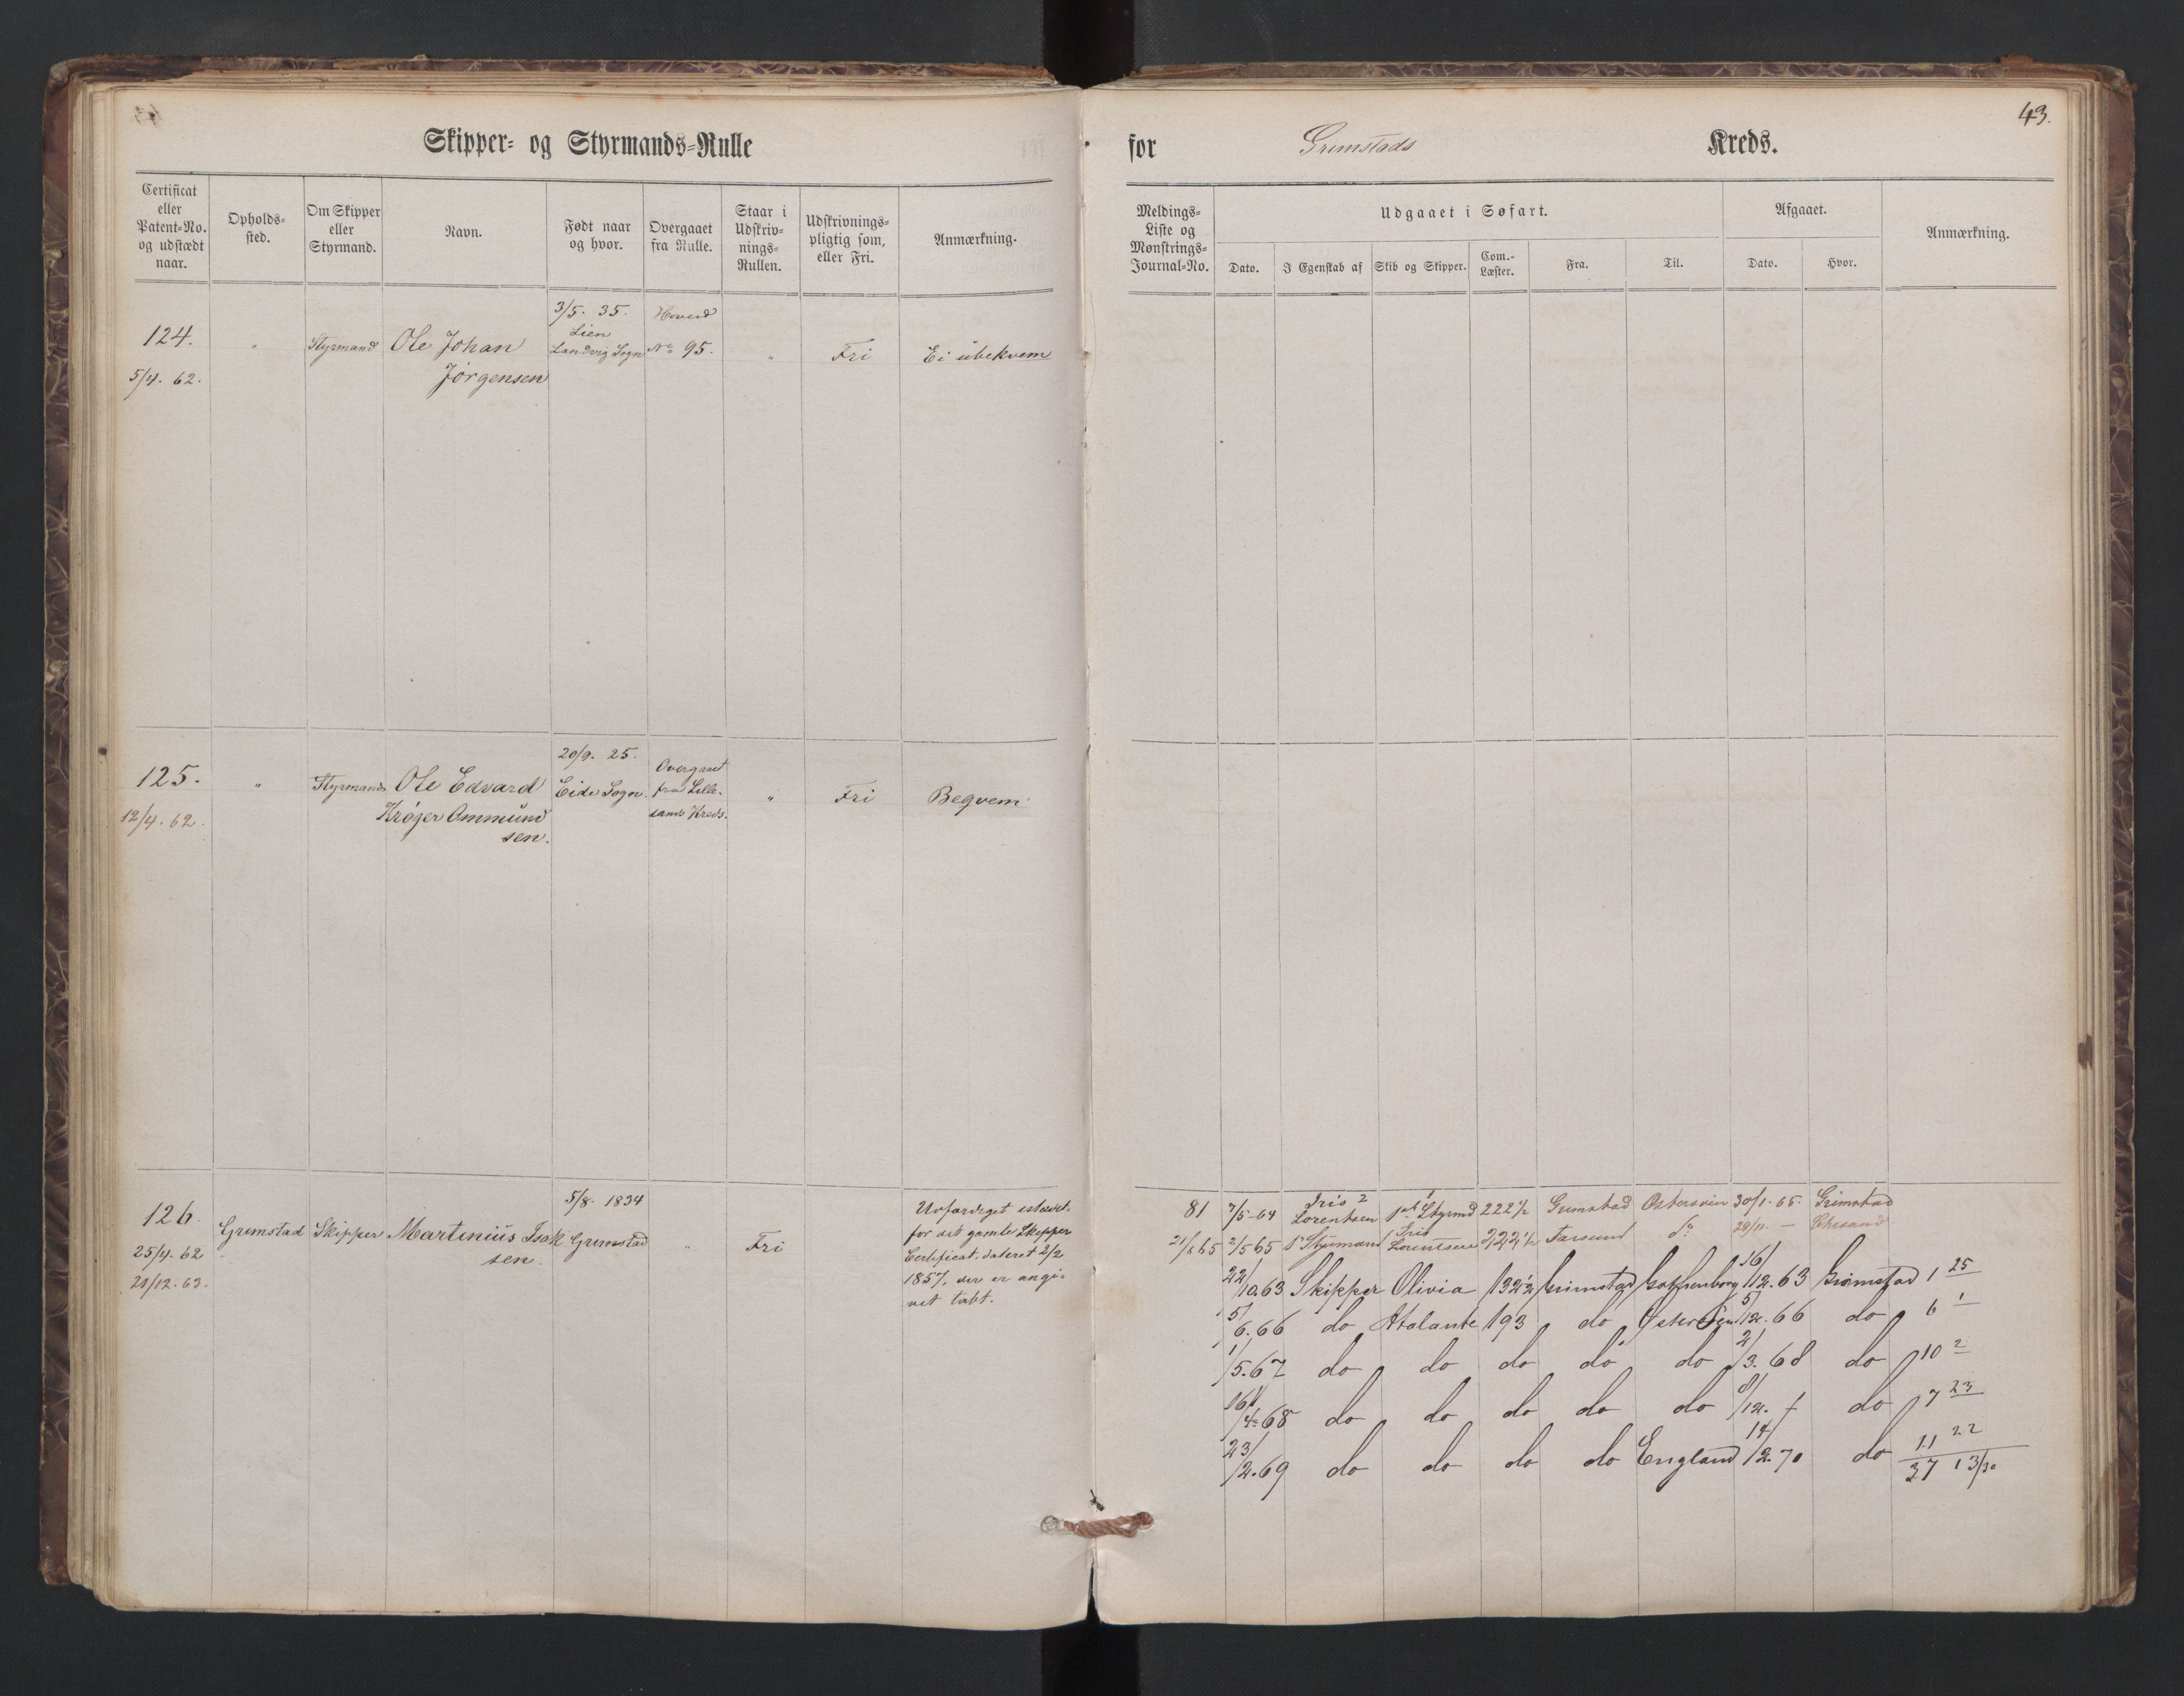 43.
Skipper- og Styrmands-Rulle for Grimstads Kreds.
Certificat eller Patent-No. og udstædt naar.
Opholds-sted.
Om Skipper eller Styrmand.
Navn.
Født naar og hvor.
Overgaaet fra Rulle.
Staar i Udskriv-nings-Rullen.
Udskrivnings-pligtig som, eller Fri.
Anmærkning.
Meldings-Liste og Mønstrings-Journal-No.
Udgaaet i Søfart.
Dato.
I Egenskab af
Skib og Skipper.
Com.-Læster.
Fra.
Til.
Afgaaet.
Dato.
Hvor.
Anmærkning.
3/5. 35. Hoved
124. " Styrmand Ole Johan Lien Landvig Sogn No 95. " Fri Ei ubekvem
5/4. 62. Jørgensen
20/9. 25. Overgaaet
125. " Styrmand Ole Edvard Eide Sogn. fra Lille- " Fri Begvem
12/4. 62. Krøger Ommund sands Kreds.
sen.
5/8. 1834
126. Grimstad Skipper Martinius Isak Grimstad " Fri
25/4. 62 sen.
21/12. 63.
Udfærdiget istedet-
for det gamle Skipper
Certificat, dateret 2/2
1857, der er angi-
vet tabt.
81 7/5-64 Iris 2 Lorentsen 1st Styrmd 222 1/2 Grimstad Østersøen 30/1. 65. Grimstad
21/4 65 2/5 65 1 Styrmand Iris Lorentsen 222 1/2 Farsund do 28/11. — Chrsand
22/10.63 Skipper Olivia 132 1/2 Grimstad Gothenborg 16/12.63 Grimstad 1 25
5/6.66 do Atalante 193 do Østersøen 5/12.66 do 6 1
1/5.67 do do do do do 2/3.68 do 10 2
16/4.68 do do do do do 8/12. do 7 23
23/2.69 do do do do England 14/2.70 do 11 22
37 13/30